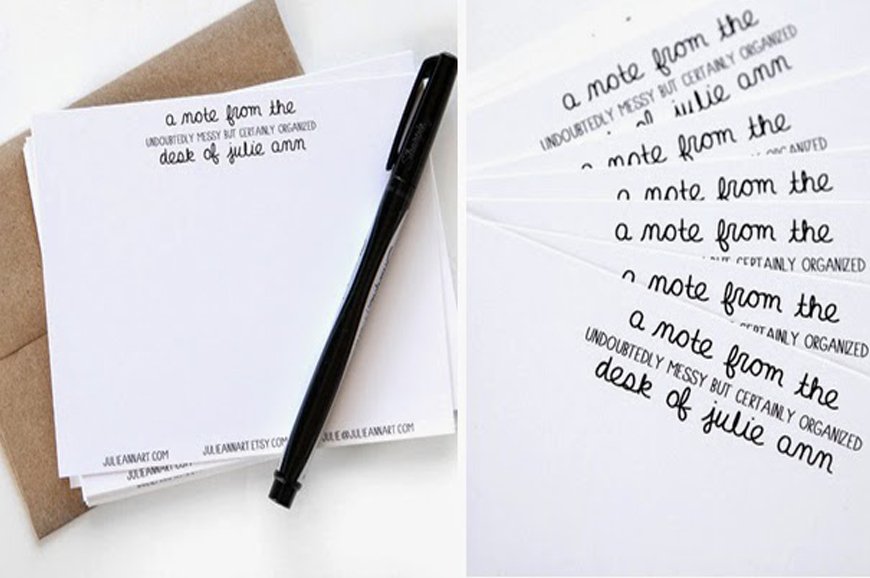 a note from the
UNDOUBTEDLY MESSY BUT CERTAINLY ORGANIZED
desk of julie ann
JULIEANNART.COM
JULIEANNART.ETSY.COM
JULIE@JULIEANNART.COM
JULIEANNART.COM
a note from the
UNDOUBTEDLY MESSY BUT CERTAINLY ORGANIZED
of julie ann
a note from the
ORGANIZED
a note from the
a note from the
BUT CERTAINLY ORGANIZED
a note from the
CERTAINLY ORGANIZED
a note from the
UNDOUBTEDLY MESSY BUT CERTAINLY ORGANIZED
desk of julie ann